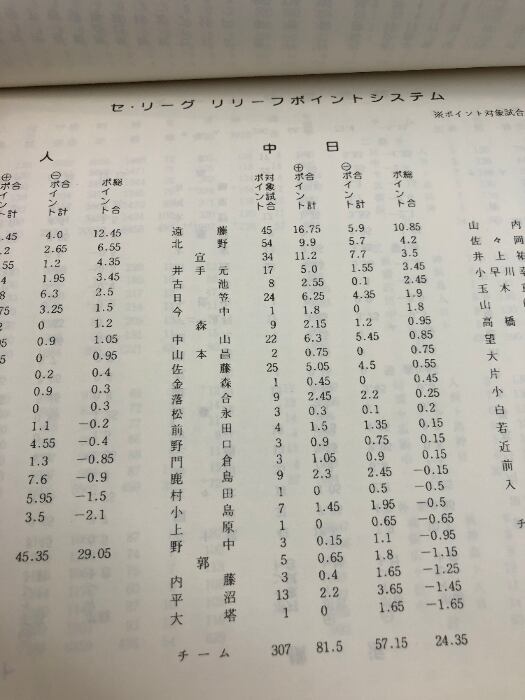 セ・リーグ リリーフポイントシステム
※ポイント対象試合
人
⊕ポイント合計 ⊖ポイント合計 総合ポイント
.45 4.0 12.45
.2 2.65 6.55
.55 1.2 4.35
.4 1.95 3.45
.8 6.3 2.5
.75 3.25 1.5
.2 0 1.2
.95 0.9 1.05
.95 0 0.95
0.2 0.4
0.9 0.3
0 0.3
1.1 −0.2
4.55 −0.4
1.3 −0.85
7.6 −0.9
5.95 −1.5
3.5 −2.1
45.35 29.05
中日
対象試合ポイント ⊕ポイント合計 ⊖ポイント合計 総合ポイント
遠藤 45 16.75 5.9 10.85
北野 54 9.9 5.7 4.2
宣 34 11.2 7.7 3.5
井手元 17 5.0 1.55 3.45
古池 8 2.55 0.1 2.45
日笠 24 6.25 4.35 1.9
今中 1 1.8 0 1.8
森 9 2.15 1.2 0.95
中山 22 6.3 5.45 0.85
山本昌 2 0.75 0 0.75
佐藤 25 5.05 4.5 0.55
金森 1 0.45 0 0.45
落合 9 2.45 2.2 0.25
松永 3 0.3 0.1 0.2
前田 4 1.5 1.35 0.15
野口 3 0.9 0.75 0.15
門倉 3 1.05 0.9 0.15
鹿島 9 2.3 2.45 −0.15
村田 1 0 0.5 −0.5
小島 7 1.45 1.95 −0.5
上原 1 0 0.65 −0.65
野中 3 0.15 1.1 −0.95
郭 5 0.65 1.8 −1.15
内藤 3 0.4 1.65 −1.25
平沼 13 2.2 3.65 −1.45
大塔 1 0 1.65 −1.65
チーム 307 81.5 57.15 24.35
山内
佐々岡
井上祐
小早川
玉木
山
高橋
望
大
片
小
白
若
近
前
入
チ